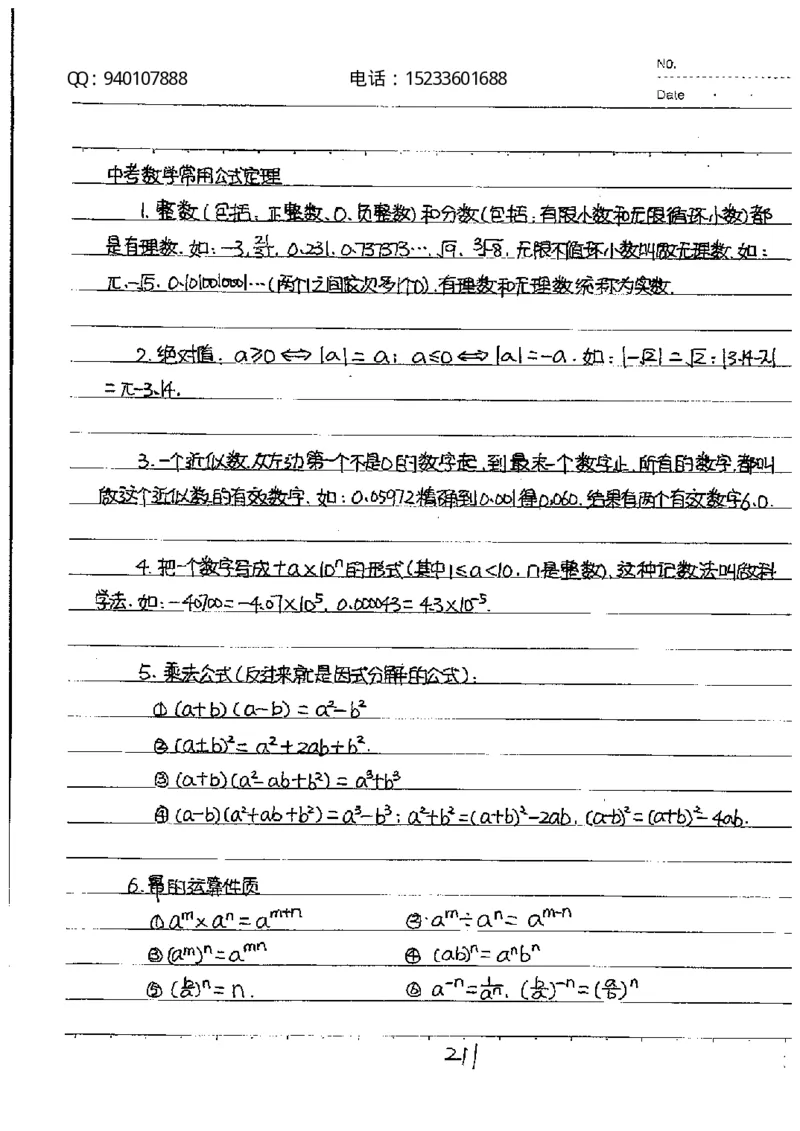 QQ：940107888 电话：15233601688 NO.
Date
中考数学常用公式定理
1. 整数(包括、正整数、0、负整数)和分数(包括：有限小数和无限循环小数)都
是有理数. 如：-3, 0.231. 0.737373…, √9, ³√-8, 无限不循环小数叫做无理数. 如：
π. -√5. 0.1010010001…(两个1之间依次多1个0). 有理数和无理数统称为实数.
2. 绝对值：a≥0⇔|a|=a；a≤0⇔|a|=-a. 如：|-√2|=√2；|3.14-π|
=π-3.14.
3. 一个近似数. 从左边第一个不是0的数字起, 到最末一个数字止, 所有的数字, 都叫
做这个近似数的有效数字. 如：0.05972精确到0.001得0.060. 结果有两个有效数字6.0.
4. 把一个数字写成+a×10ⁿ的形式(其中1≤a<10. n是整数), 这种记数法叫做科
学法. 如：-40700=-4.07×10⁵, 0.000043=4.3×10⁻⁵.
5. 乘法公式(反过来就是因式分解的公式)：
① (a+b)(a-b)=a²-b²
② (a±b)²=a²+2ab+b².
③ (a+b)(a²-ab+b²)=a³+b³
④ (a-b)(a²+ab+b²)=a³-b³；a²+b²=(a+b)²-2ab, (a-b)²=(a+b)²-4ab.
6. 幂的运算性质
① aᵐ×aⁿ=aᵐ⁺ⁿ ②. aᵐ÷aⁿ=aᵐ⁻ⁿ
③ (aᵐ)ⁿ=aᵐⁿ ④ (ab)ⁿ=aⁿbⁿ
⑤ (b/a)ⁿ=n. ⑥ a⁻ⁿ=1/aⁿ, (b/a)⁻ⁿ=(a/b)ⁿ
211